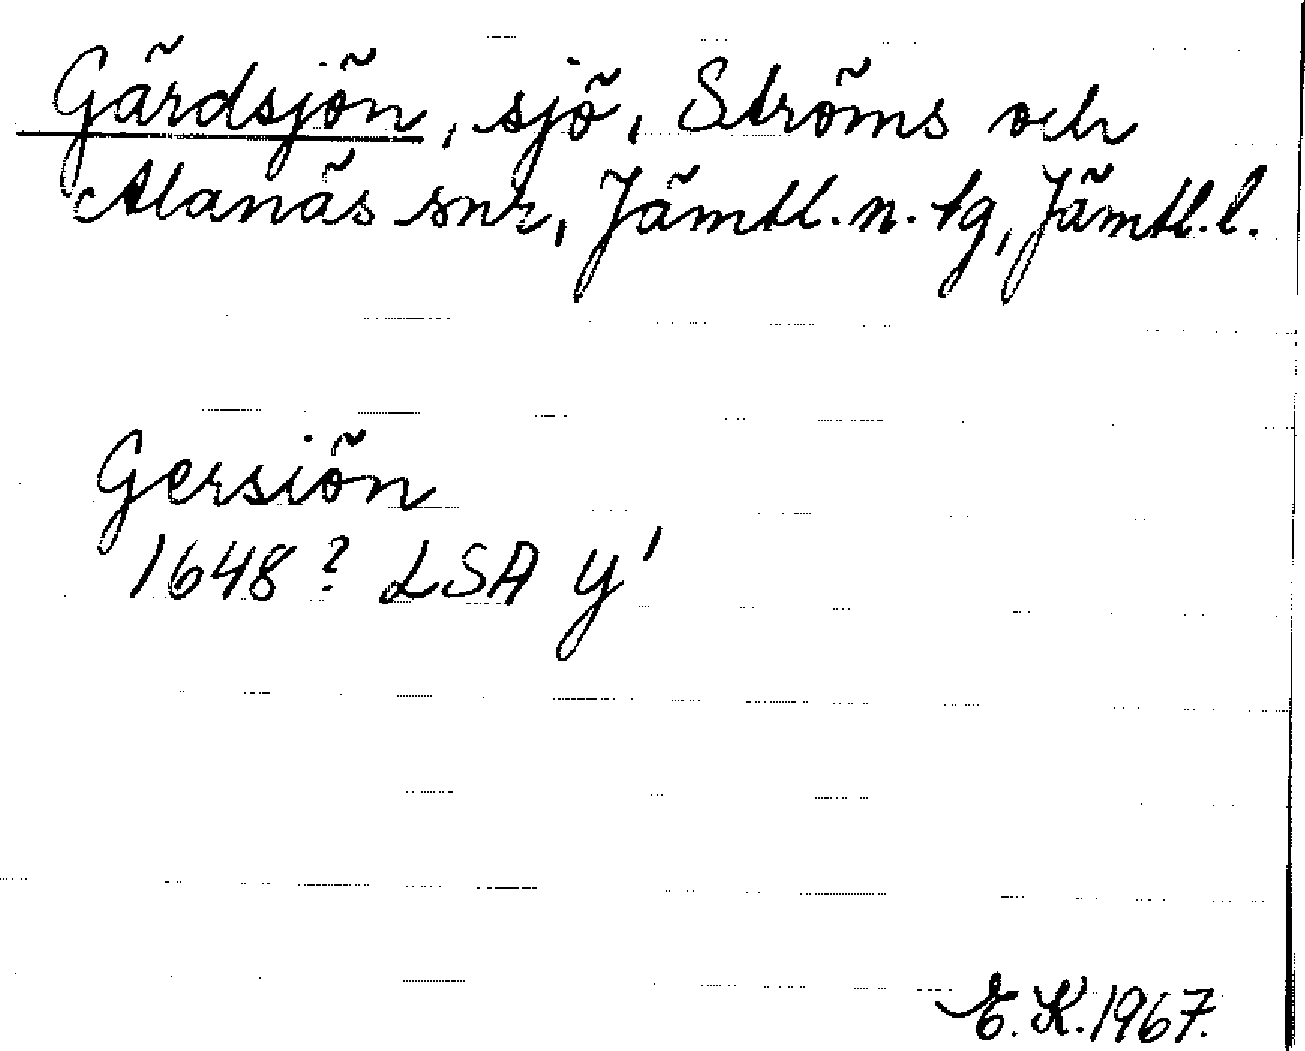 Gärdsjön, sjö, Ströms och
Alanäs snr, Jämtl. n. tg, Jämtl. l.
Gersiön
1648? LSA y¹
E. K. 1967.